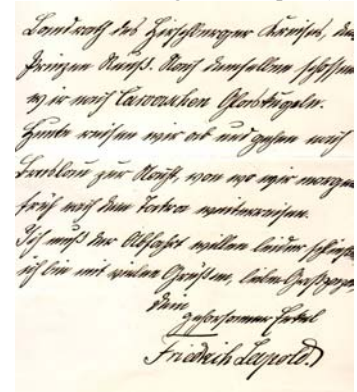 Landrath des Hirschberger Kreises, dem
Prinzen Reuß. Nach demselben schossen
wir nach lawaschen Glaskugeln.
Heute reisen wir ab und gehen nach
Breslau zur Nacht, von wo wir morgen
früh nach dem Tatra weiterreisen.
Ich muß der Abfahrt willen leider schließen
ich bin mit vielen Grüßen, lieber Großpapa
Dein
gehorsamer Enkel
Friedrich Leopold.